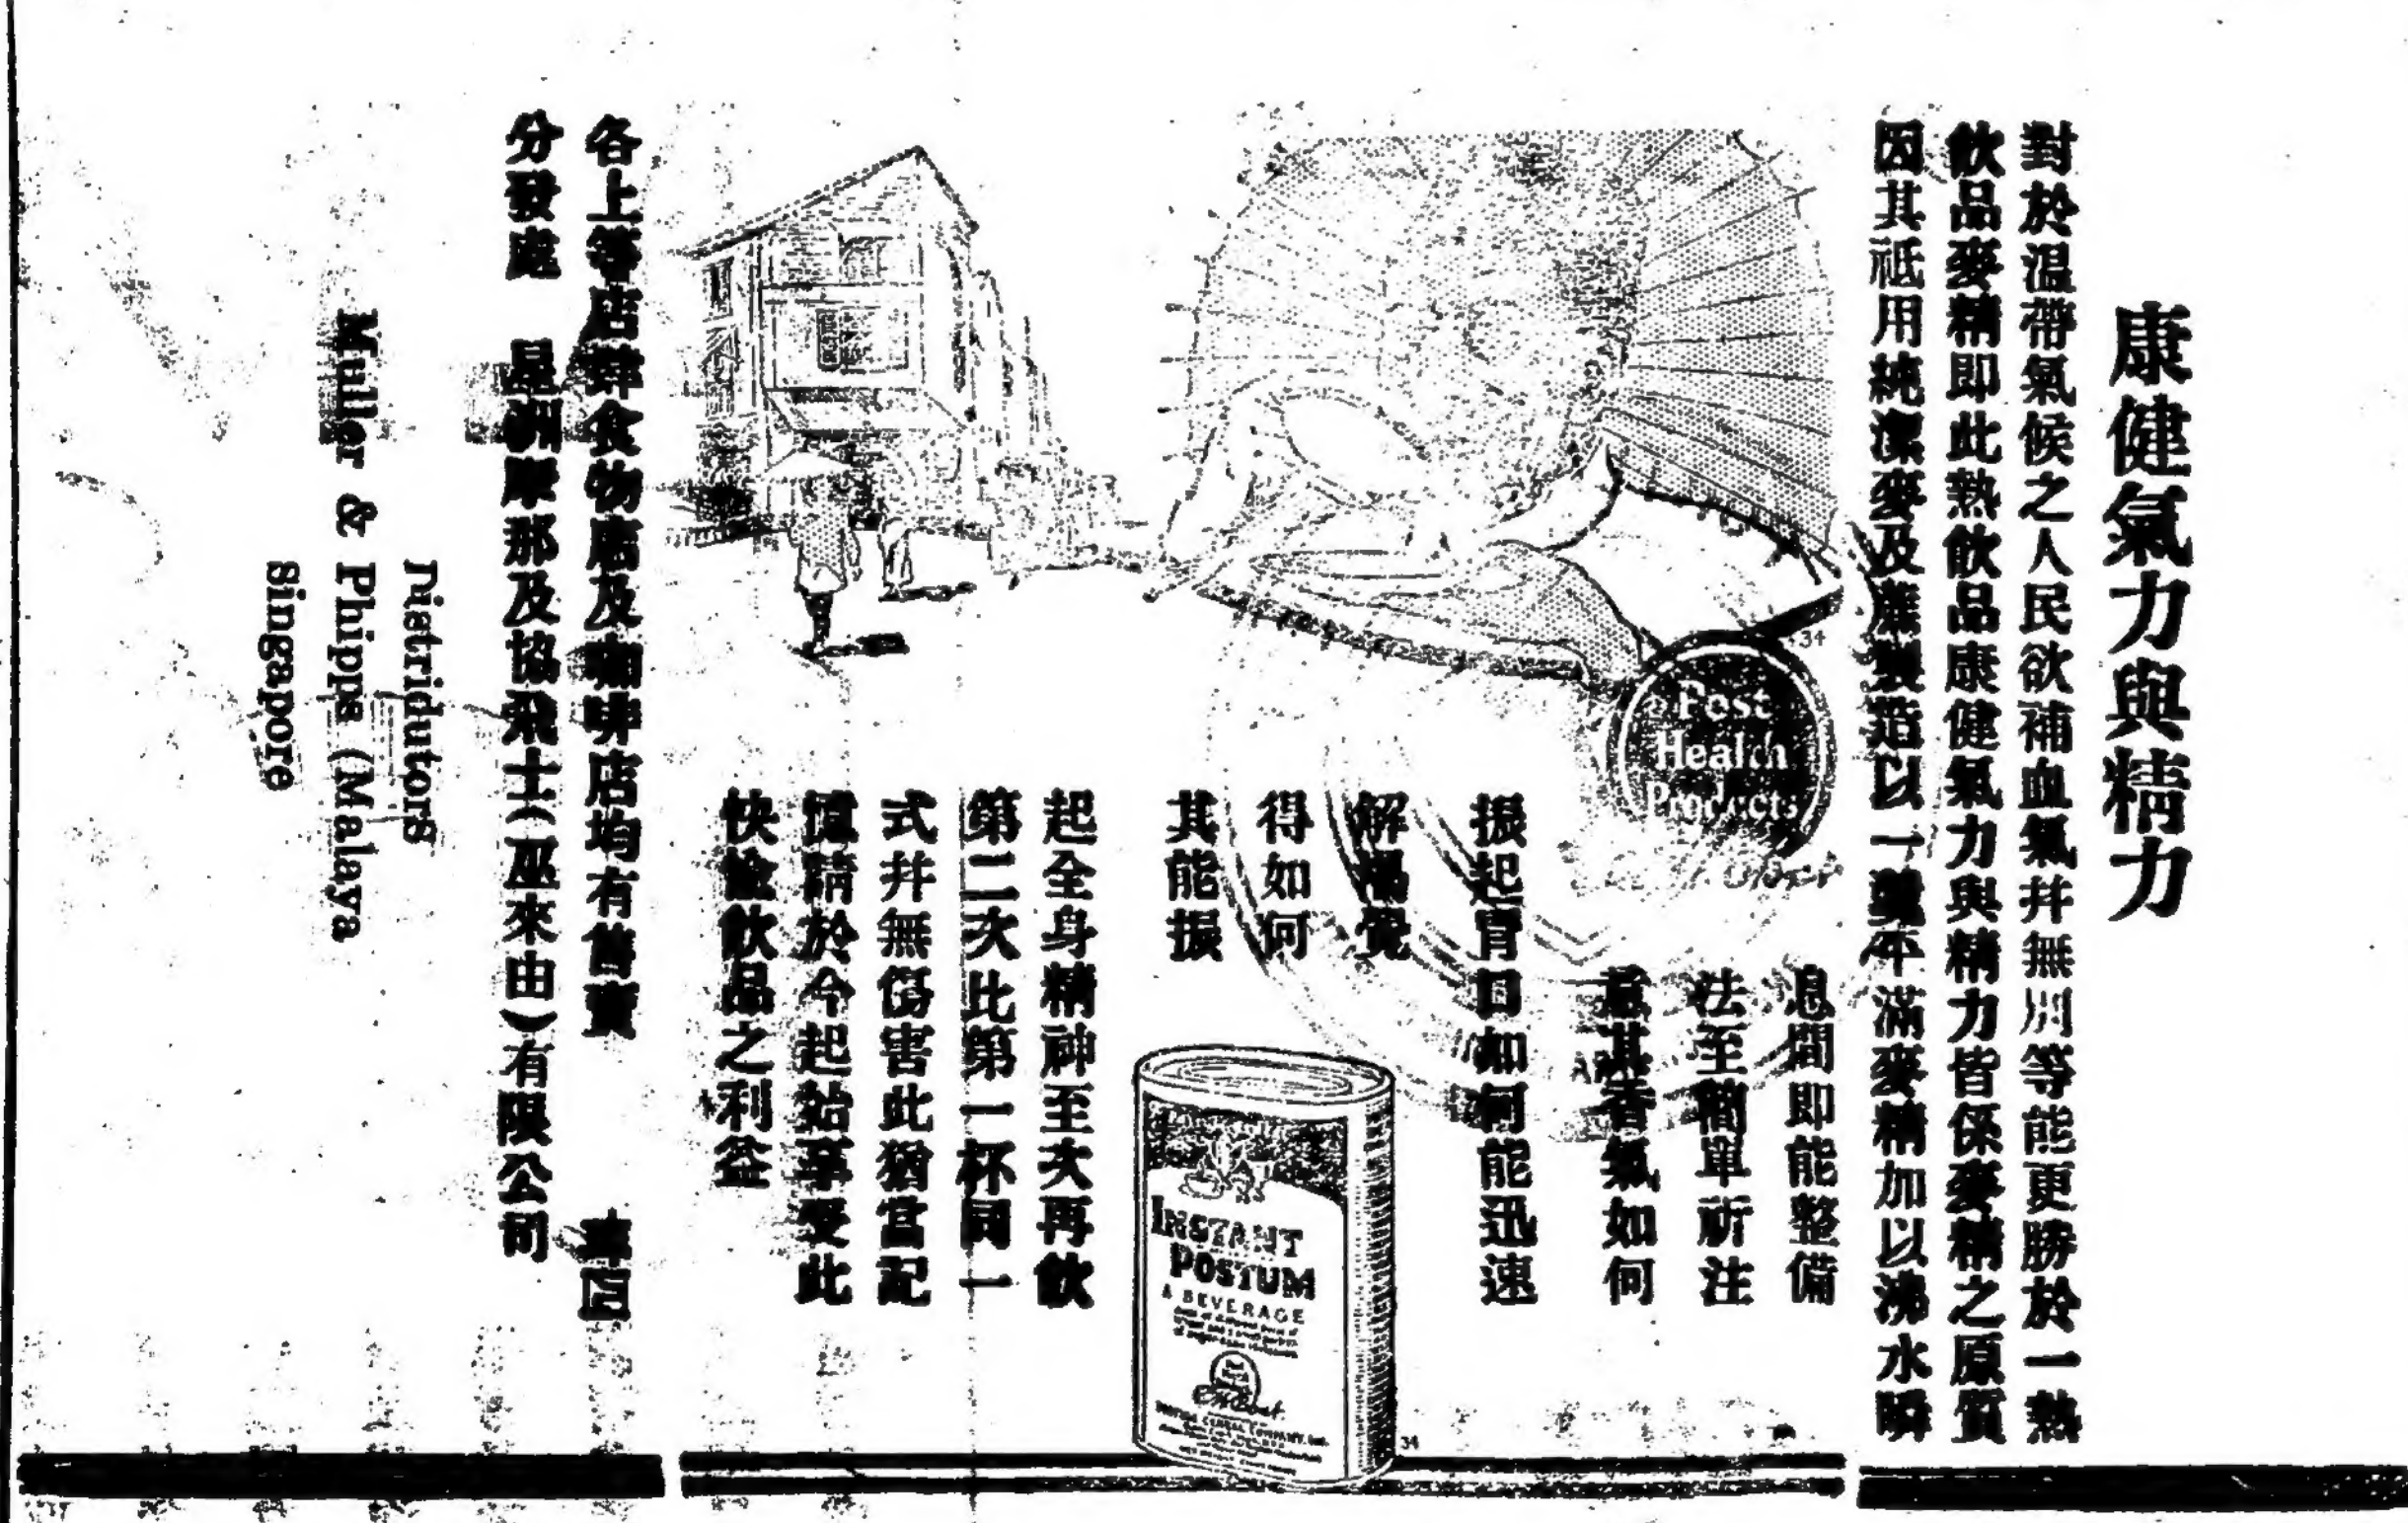 康健氣力與精力
對於温帶氣候之人民欲補血氣幷無別等能更勝於一熱
飲品麥精即此熱飲品康健氣力與精力皆係麥精之原質
因其祗用純潔麥及蔗製造以一羹平滿麥精加以沸水瞬
息間即能整備
法至簡單祈注
意其香氣如何
振起胃口如何能迅速
解渴覺
得如何
其能振
起全身精神至次再飲
第二次比第一杯同一
式幷無傷害此猶當記
憶請於今起始享受此
快愉飲品之利益
Post
Health
Products
34
INSTANT
POSTUM
A BEVERAGE
34
各上等店肆食物店及咖啡店均有售賣
分發處 星洲摩那及協飛士(巫來由)有限公司
Distridutors
Muller & Phipps (Malaya
Singapore